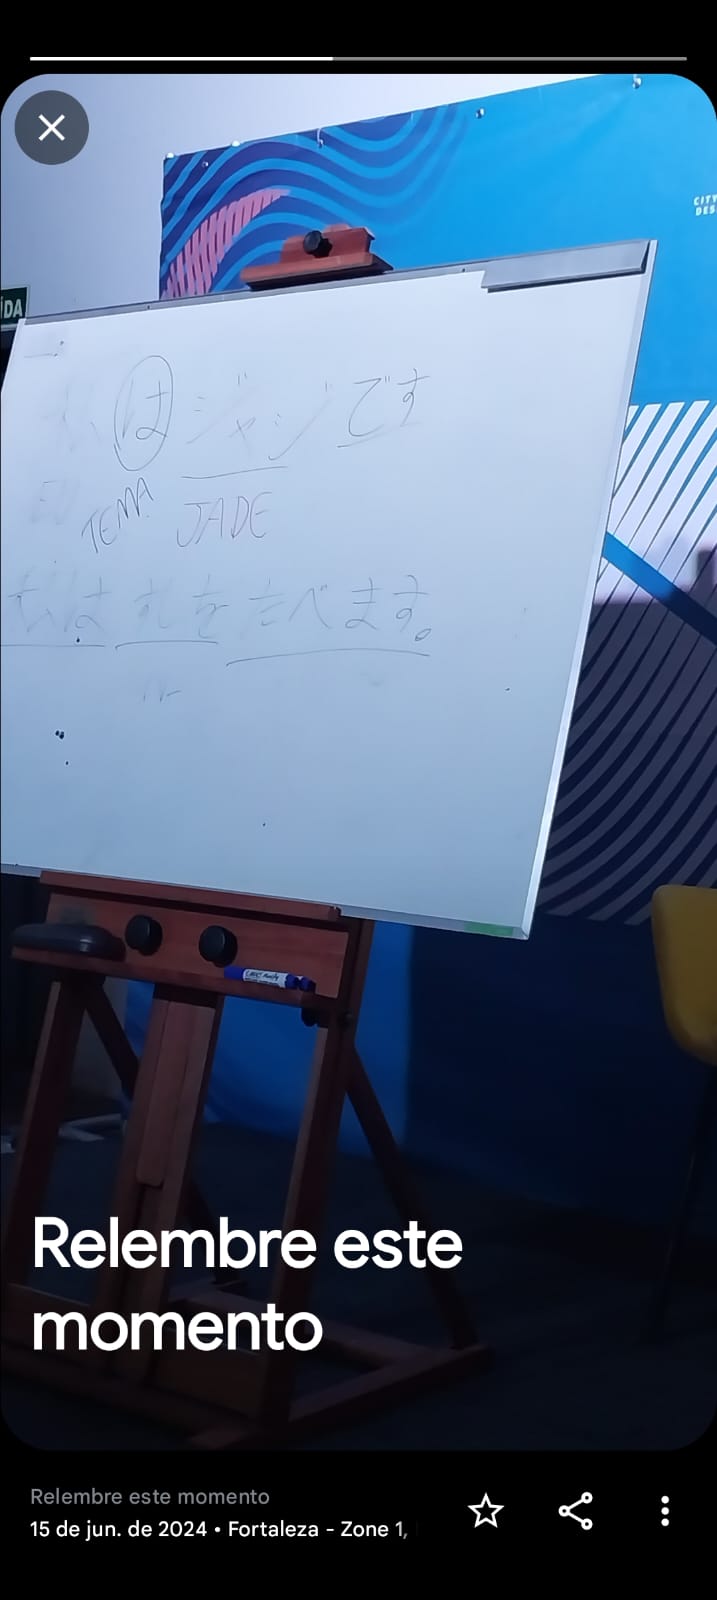 ÍDA
CITY
DES
私はジャジです
EU TEMA JADE
私は をたべます。
Relembre este
momento
Relembre este momento
15 de jun. de 2024 • Fortaleza - Zone 1,